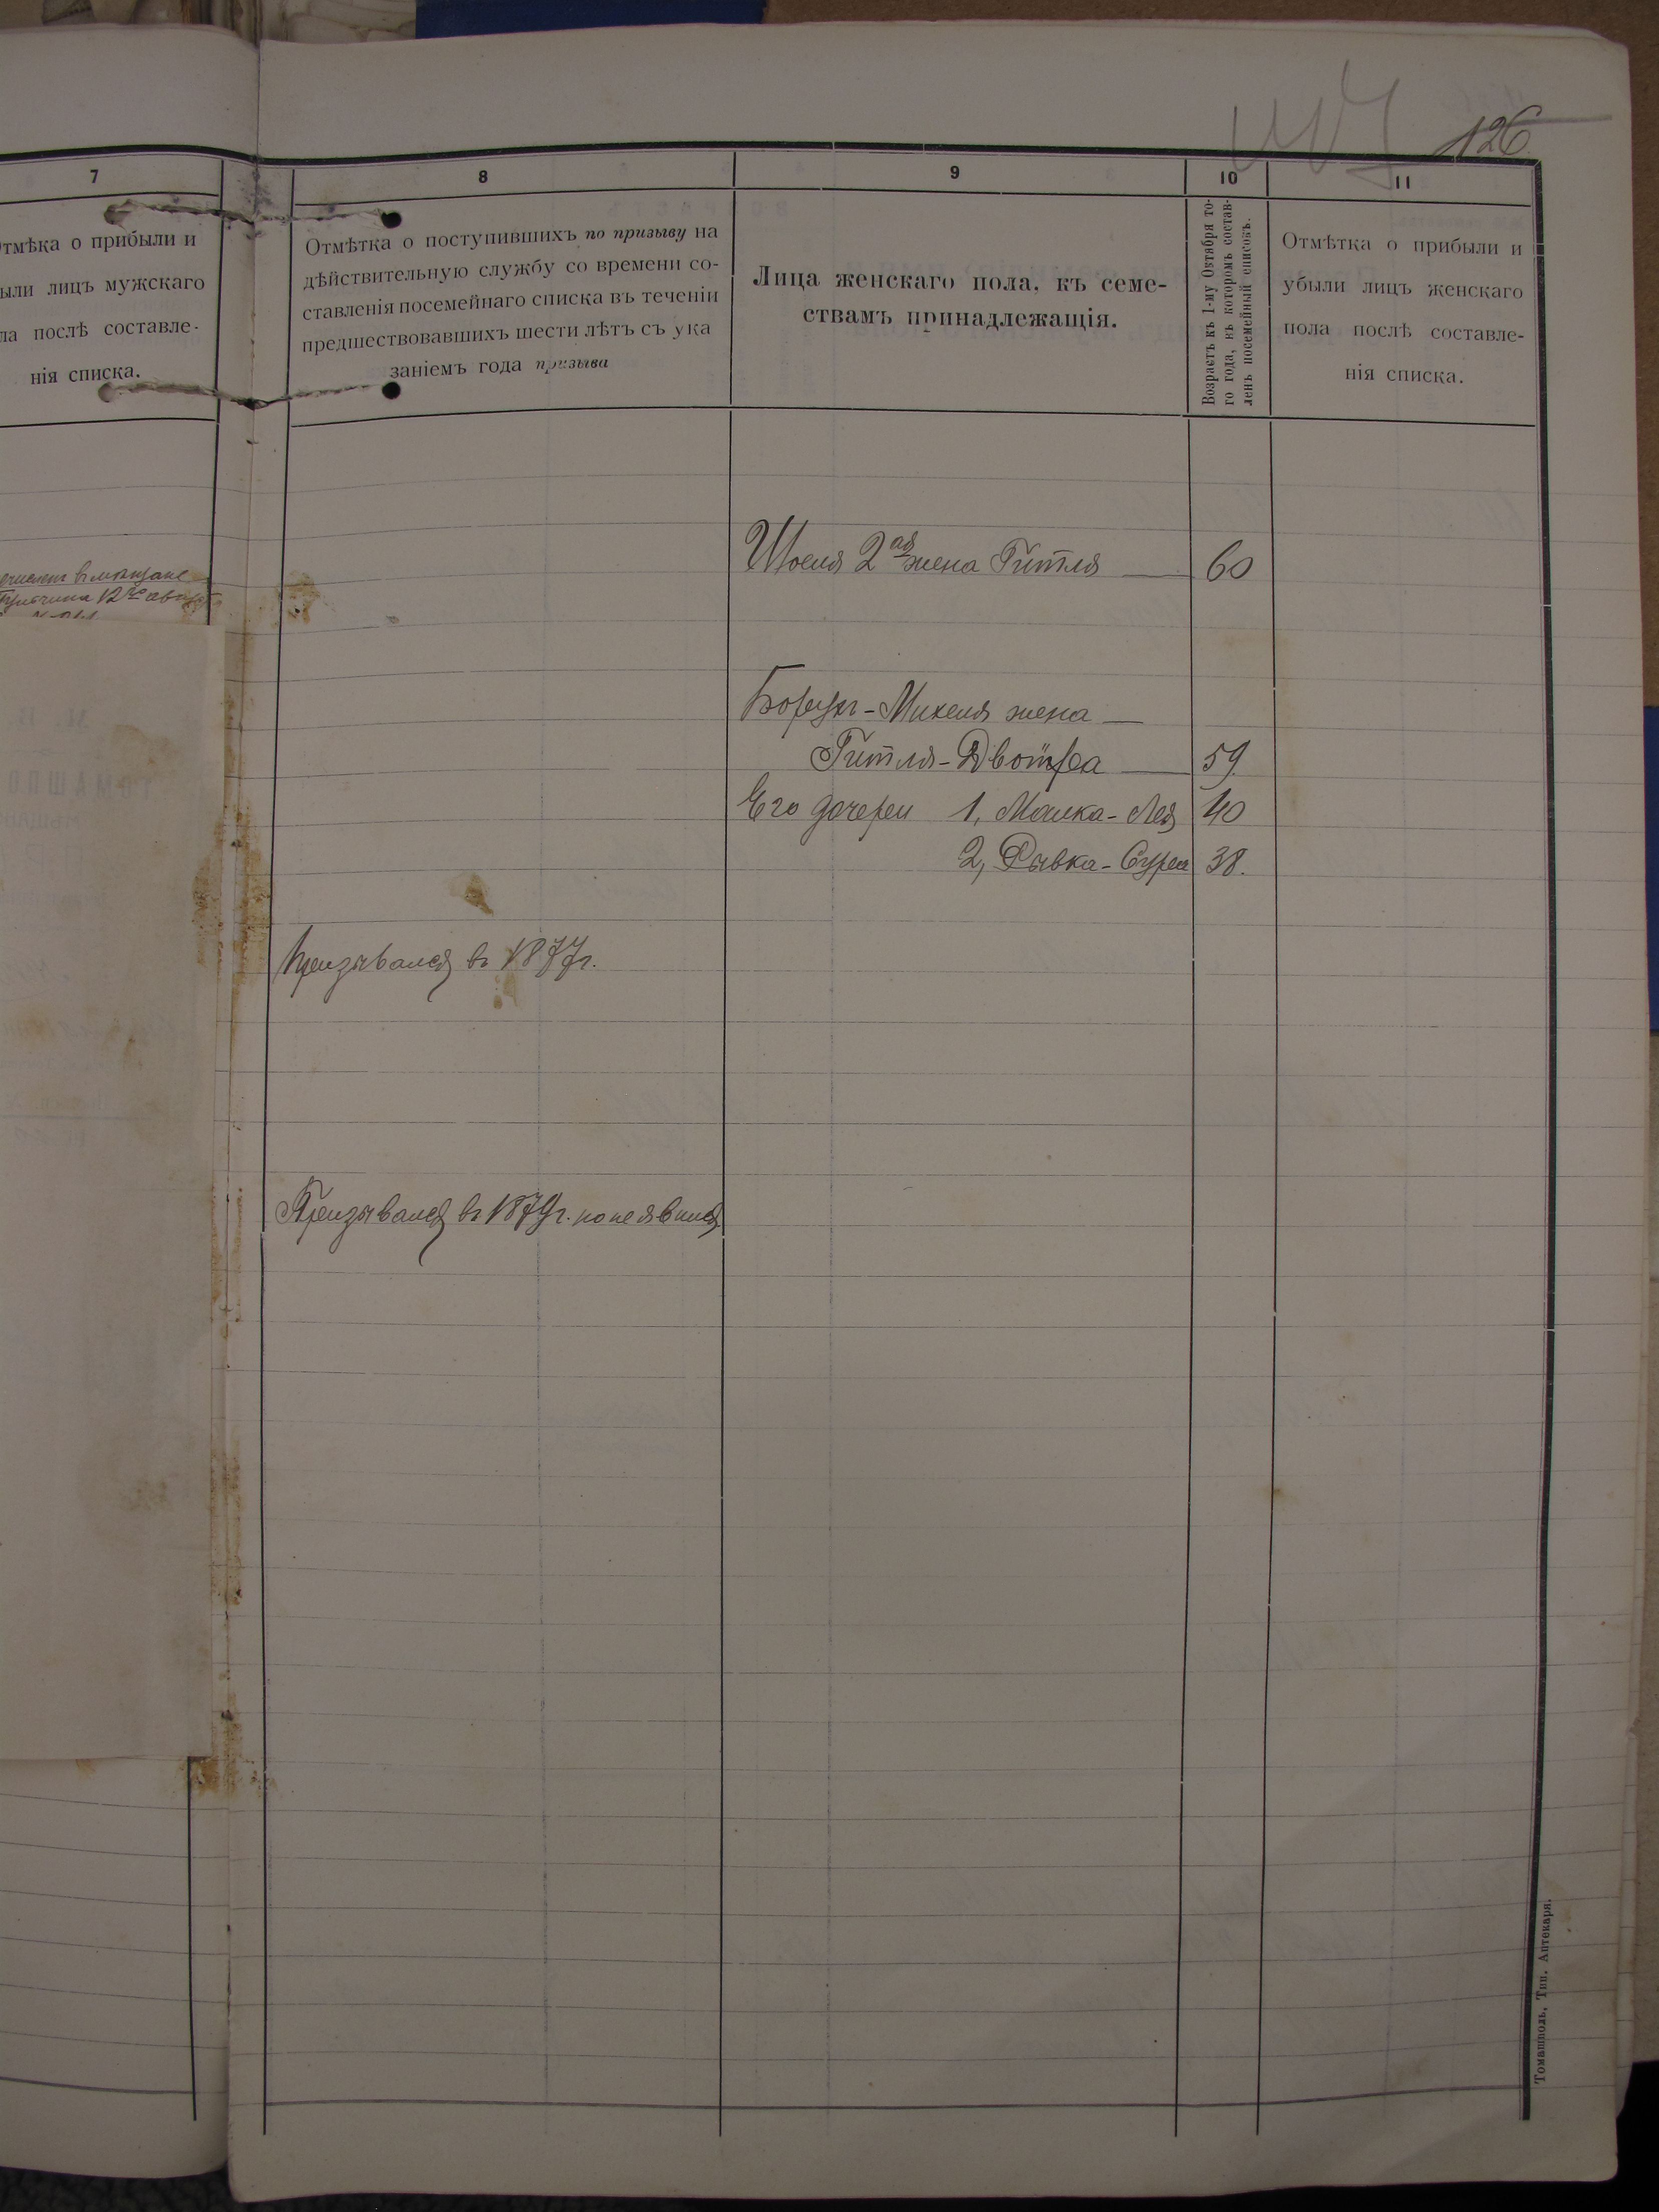 126.
7
Отмѣка о прибыли и
были лицъ мужскаго
ла послѣ составле-
нія списка.
8
Отмѣтка о поступившихъ по призыву на
дѣйствительную службу со времени со-
ставленія посемейнаго списка въ теченіи
предшествовавшихъ шести лѣтъ съ ука
заніемъ года призыва
9
Лица женскаго пола, къ семе-
ствамъ принадлежащія.
10
Возрастъ къ 1-му Октября то-
го года, въ которомъ состав-
ленъ посемейный списокъ.
11
Отмѣтка о прибыли и
убыли лицъ женскаго
пола послѣ составле-
нія списка.
2ая жена Гитля 60
Борух-Михеля жена
Гитля-Двойра 59.
Его дочери 1, Малка-Лея 40
2, Рывка-Сура 38.
Призывался въ 1877г.
Призывался въ 1879г. но не явился
Томашполь, Тип. Аптекаря.